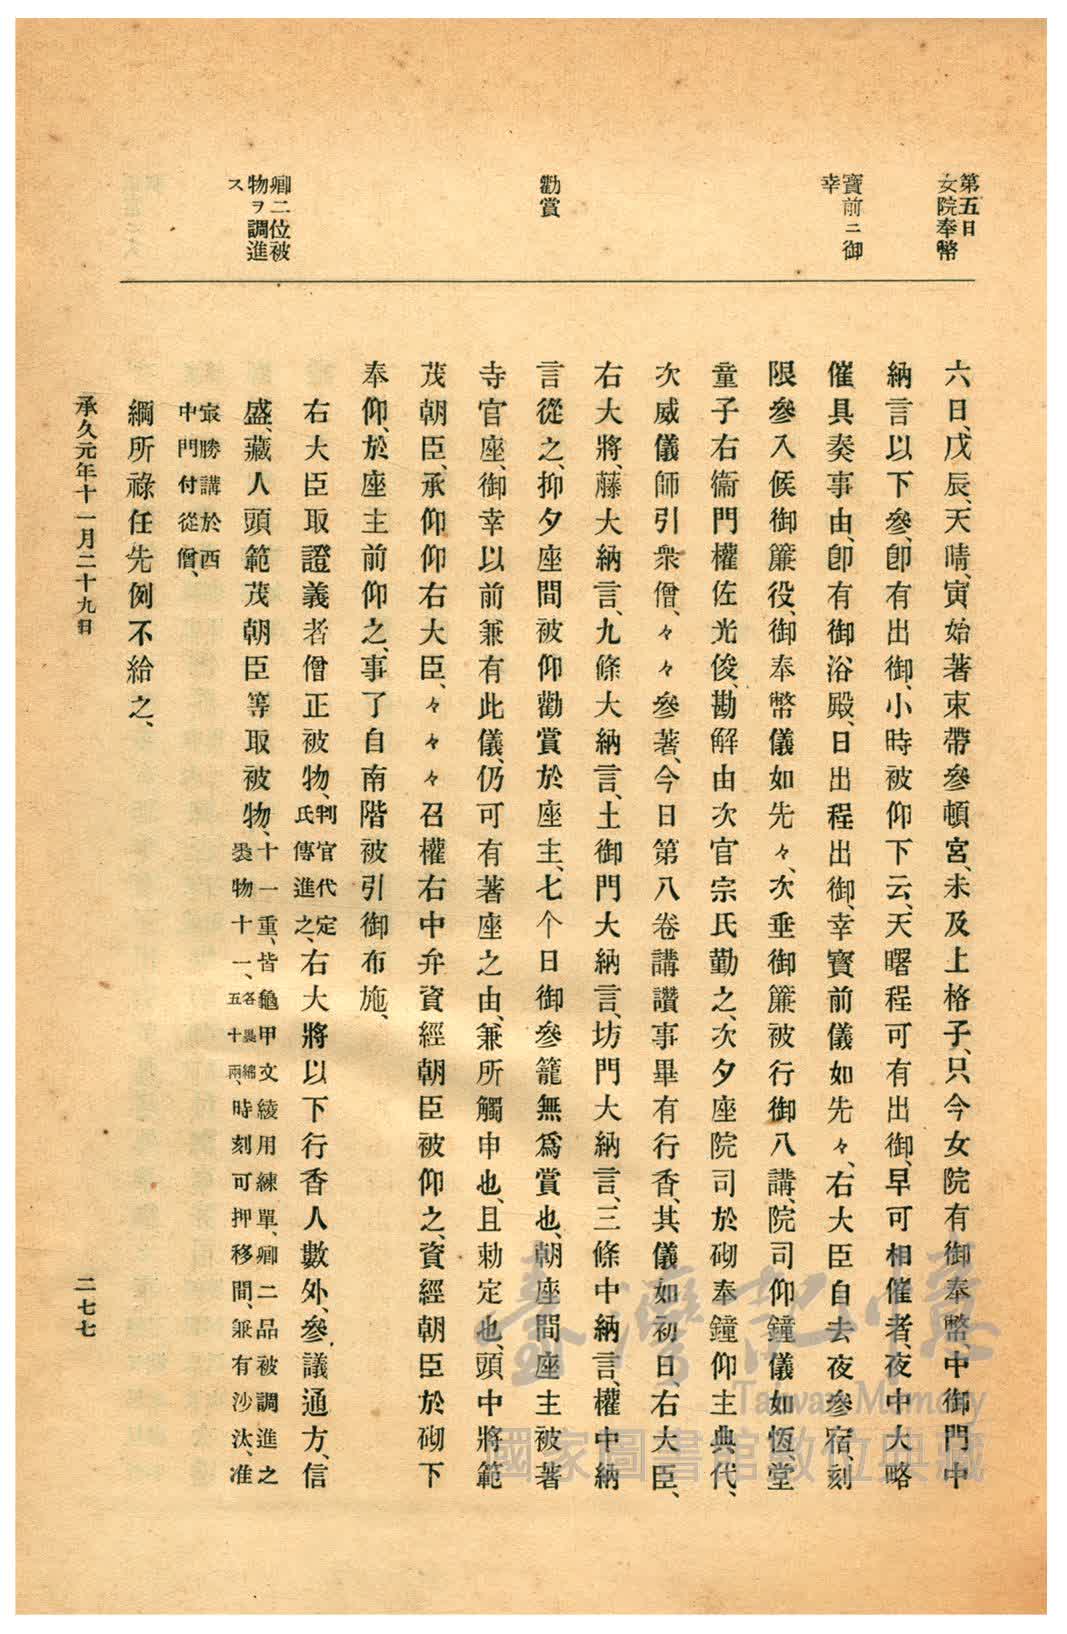 第五日
女院奉幣
寶前ニ御
幸
勸賞
卿二位被
物ヲ調進
ス
六日、戊辰、天晴、寅始著束帶參頓宮、未及上格子、只今女院有御奉幣、中御門中
納言以下參、卽有出御、小時被仰下云、天曙程可有出御、早可相催者、夜中大略
催具奏事由、卽有御浴殿、日出程出御、幸寶前儀如先々、右大臣自去夜參宿、刻
限參入候御簾役、御奉幣儀如先々、次垂御簾被行御八講、院司仰鐘儀如恆、堂
童子右衞門權佐光俊、勘解由次官宗氏勤之、次夕座院司於砌奉鐘仰主典代、
次威儀師引衆僧、々々參著、今日第八卷講讚事畢有行香、其儀如初日、右大臣、
右大將、藤大納言、九條大納言、土御門大納言、坊門大納言、三條中納言、權中納
言從之、抑夕座間被仰勸賞於座主、七个日御參籠無爲賞也、朝座間座主被著
寺官座、御幸以前兼有此儀、仍可有著座之由、兼所觸申也、且勅定也、頭中將範
茂朝臣、承仰仰右大臣、々々々召權右中弁資經朝臣被仰之、資經朝臣於砌下
奉仰、於座主前仰之、事了自南階被引御布施、
右大臣取證義者僧正被物、判官代定氏傳進之、右大將以下行香人數外、參議通方、信
盛、藏人頭範茂朝臣等取被物、十一重、皆龜甲文綾用練單、卿二品被調進之
裹物十一、各裹綿五十兩、時刻可押移間、兼有沙汰、准
最勝講於西
中門付從僧、
綱所祿任先例不給之、
承久元年十一月二十九日
二七七
臺灣記憶
Taiwan Memory
國家圖書館數位典藏